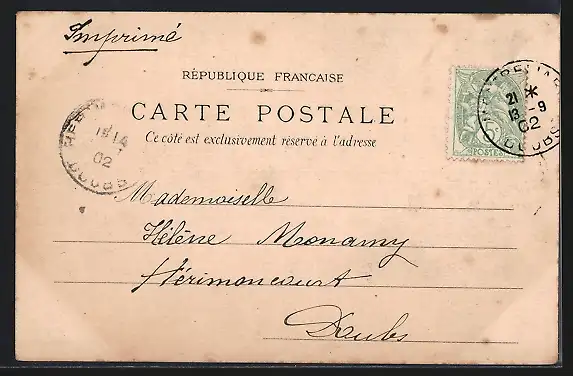 Imprimé
RÉPUBLIQUE FRANCAISE
CARTE POSTALE
Ce côté est exclusivement réservé à l'adresse
POSTES
21
13 -9
02
DOUBS
02
DOUBS
Mademoiselle
Hélène Monamy
Hérimoncourt
Doubs